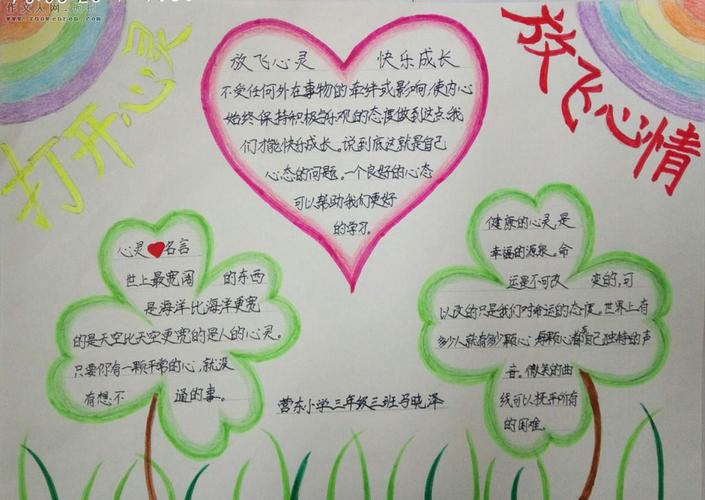 作文人网
www.zuowenren.com
打开心灵
放飞心情
放飞心灵 快乐成长
不受任何外在事物的牵绊或影响,使内心
始终保持积极与乐观的态度做到这点,我
们才能快乐成长。说到底这就是自己
心态的问题。一个良好的心态
可以帮助我们更好
的学习。
心灵 名言
世上最宽阔 的东西
是海洋比海洋更宽
的是天空比天空更宽的是人的心灵。
只要你有一颗平常的心,就没
有想不 通的事。
健康的心灵,是
幸福的源泉。命
运是不可改 变的,可
以改的只是我们对命运的态度。世界上有
多少人就有多少颗心 每颗心都有自己独特的声
音。微笑的曲
线可以抚平所有
的困难。
营东小学三年级三班马晓泽